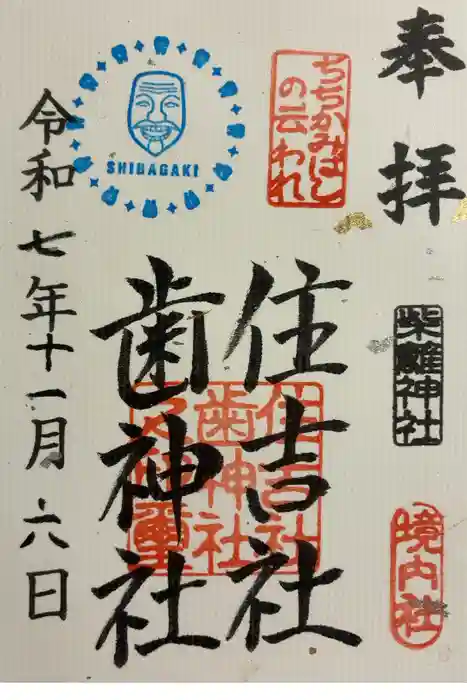 奉拝
柴籬神社
境内社
ちちかみばしの云われ
住吉社
歯神社
住吉社
歯神社
SHIBAGAKI
令和七年十一月六日